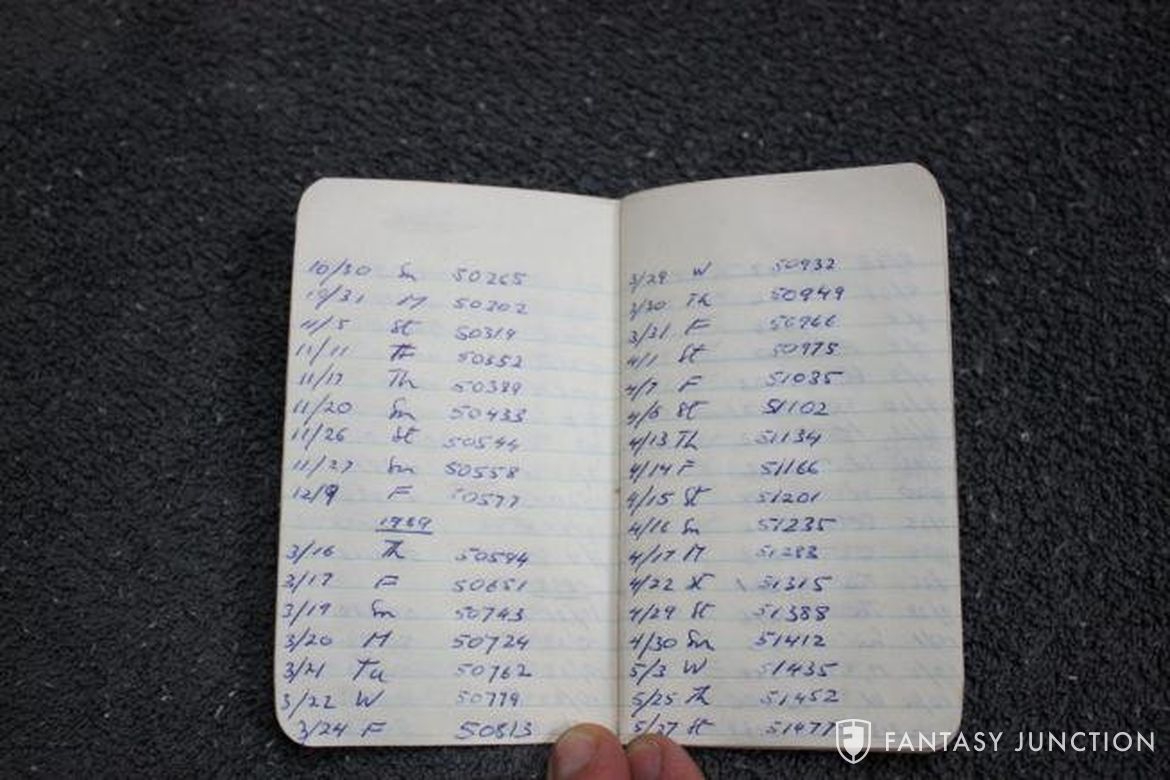 10/30 Sn 50265
10/31 M 50302
11/5 St 50319
11/11 F 50352
11/17 Th 50389
11/20 Sn 50433
11/26 St 50544
11/27 Sn 50558
12/9 F 50577
1989
3/16 Th 50594
3/17 F 50651
3/19 Sn 50743
3/20 M 50724
3/21 Tu 50762
3/22 W 50779
3/24 F 50813
3/29 W 50932
3/30 Th 50949
3/31 F 50966
4/1 St 50975
4/7 F 51035
4/8 St 51102
4/13 Th 51134
4/14 F 51166
4/15 St 51201
4/16 Sn 51235
4/17 M 51283
4/22 St 51315
4/29 St 51388
4/30 Sn 51412
5/3 W 51435
5/25 Th 51452
5/27 St 51477
FANTASY JUNCTION